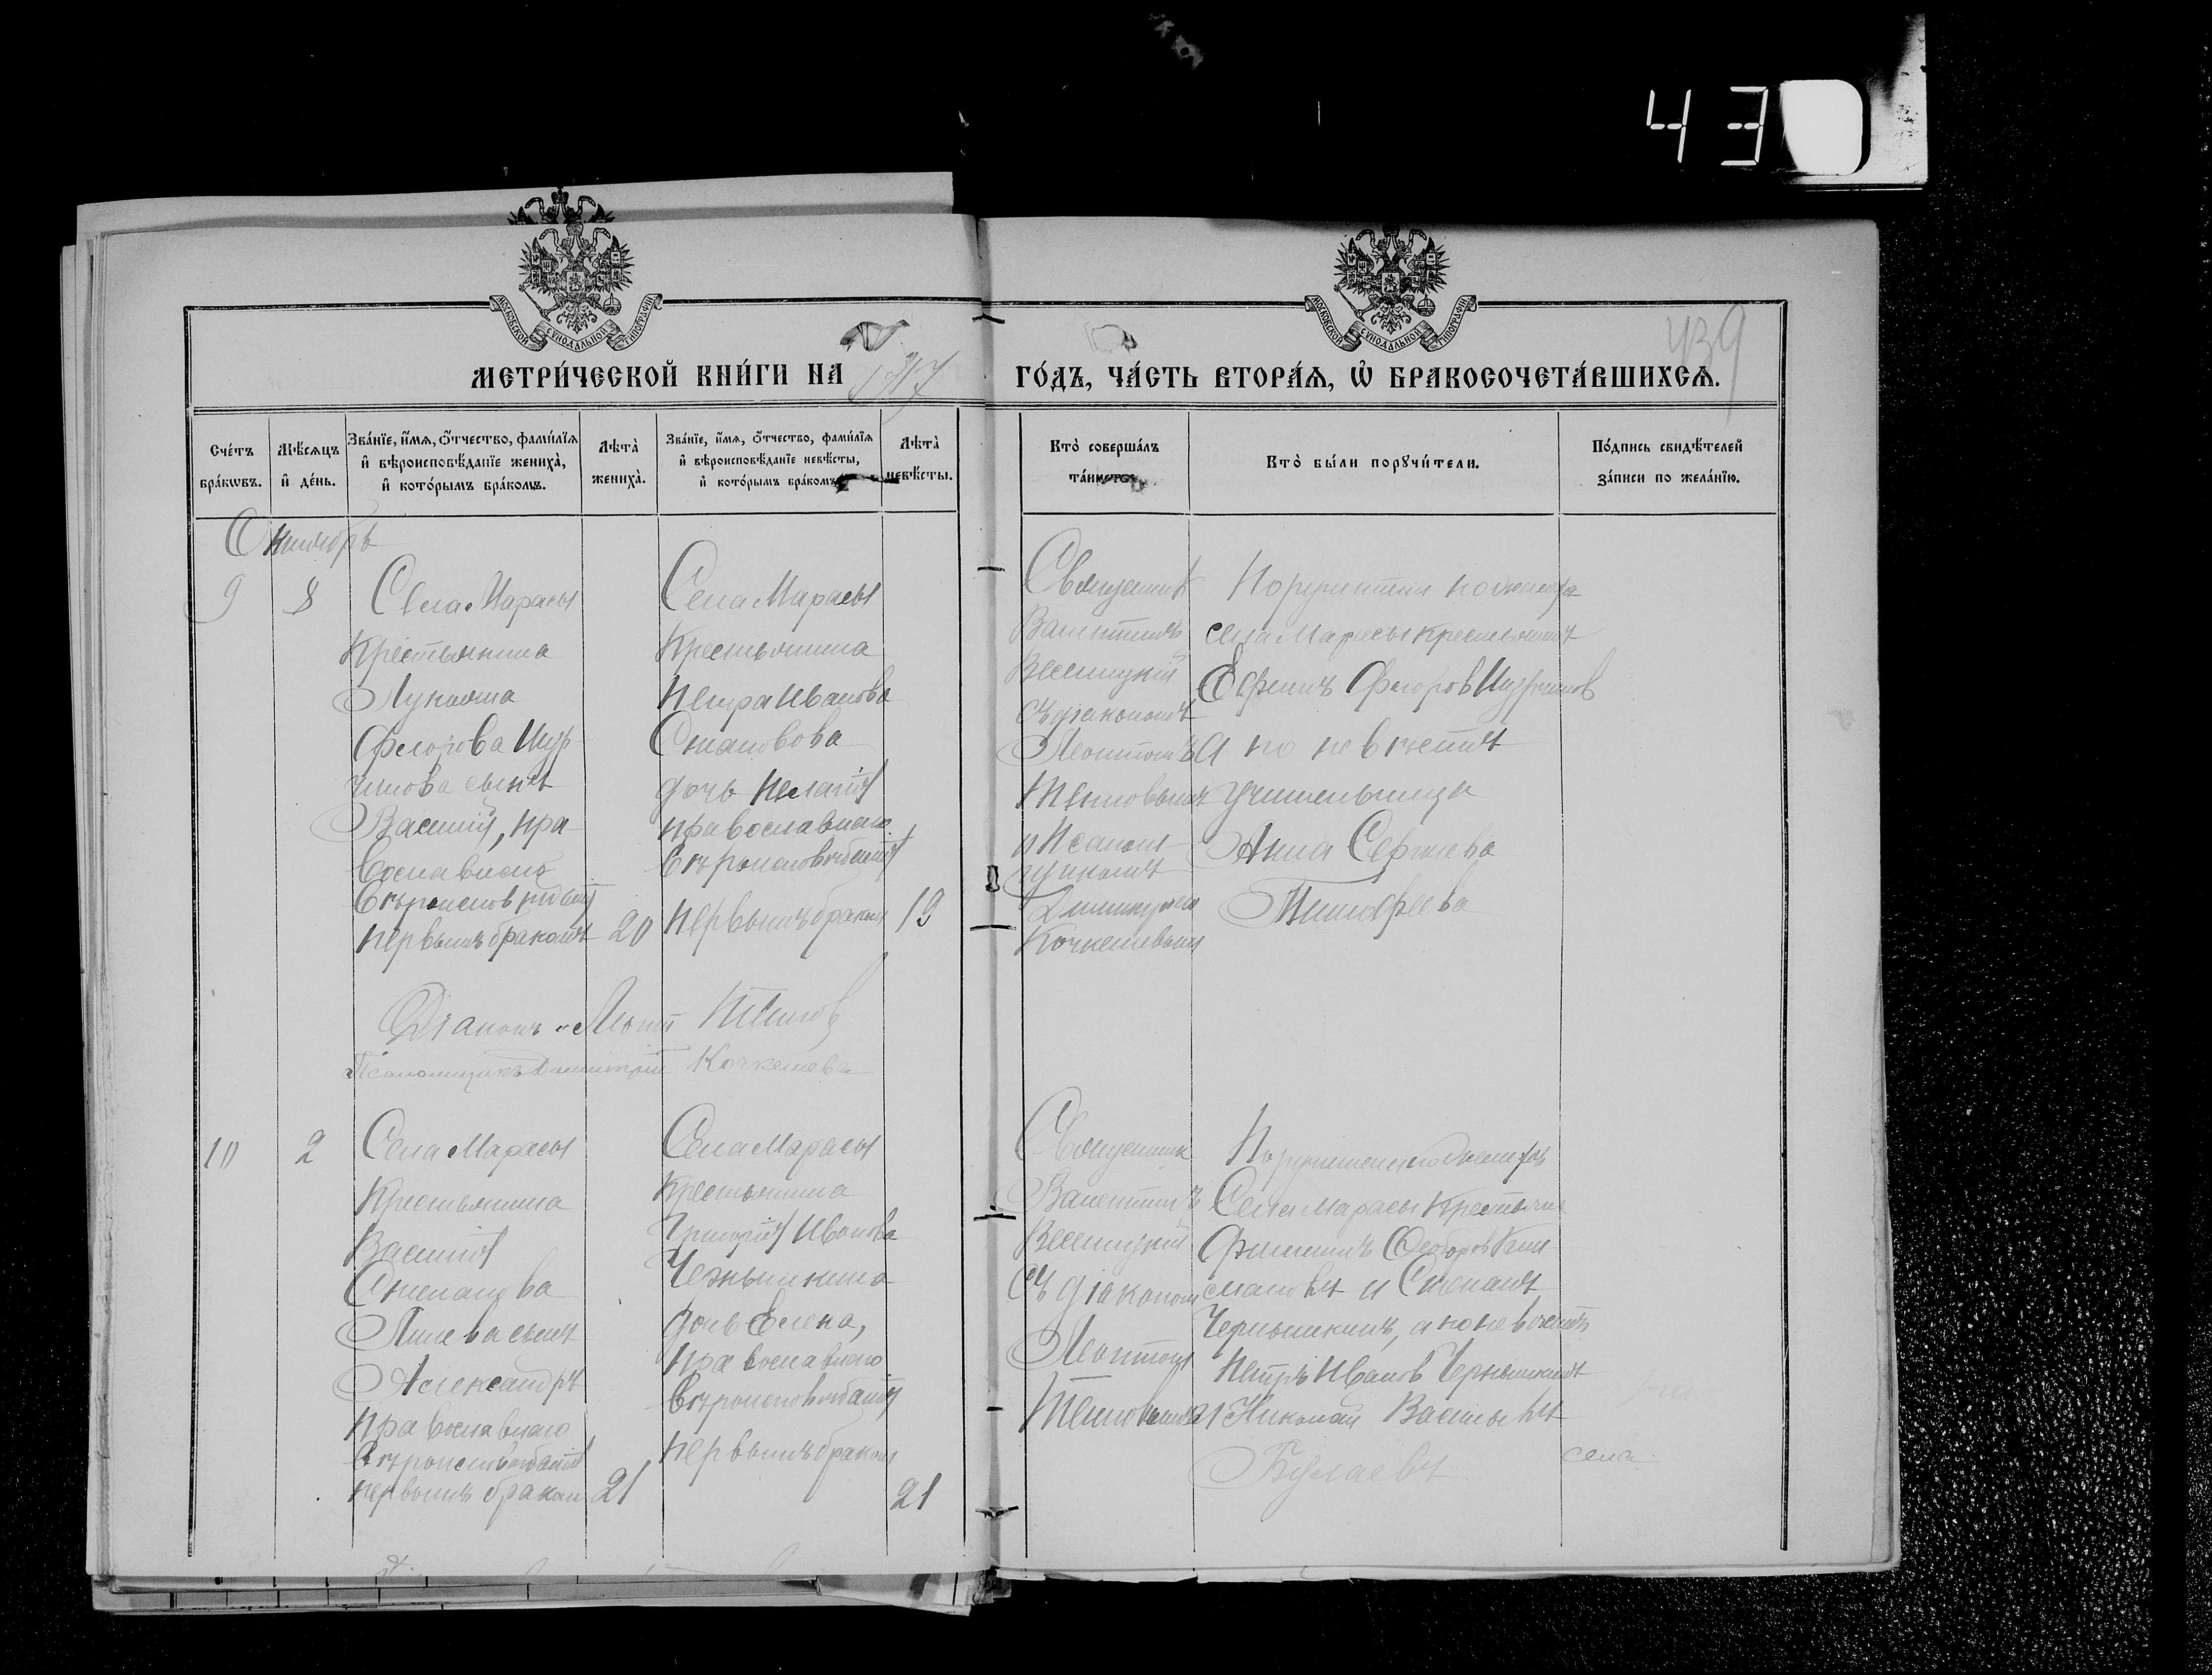 430
МОСКОВСКОЙ СѴНОДАЛЬНОЙ ТИПОГРАФІИ
МОСКОВСКОЙ СѴНОДАЛЬНОЙ ТИПОГРАФІИ
439
МЕТРИ́ЧЕСКОЙ КНИ́ГИ НА 1917 ГО́ДЪ, ЧА́СТЬ ВТОРА́Я, Ѡ҆ БРАКОСОЧЕТА́ВШИХСЯ.
Сче́тъ бра́кѡвъ.
Мѣ́сяцъ и҆ де́нь.
Зва́нїе, и҆́мя, ѻ҆́тчество, фами́лїя
и҆ вѣроисповѣ́данїе жениха̀,
и҆ кото́рымъ бра́комъ.
Лѣта̀ жениха̀.
Зва́нїе, и҆́мя, ѻ҆́тчество, фами́лїя
и҆ вѣроисповѣ́данїе невѣ́сты,
и҆ кото́рымъ бра́комъ
Лѣта̀ невѣ́сты.
Кто̀ соверша́лъ
та́инство
Кто̀ бы́ли порꙋчи́тели.
По́дпись свидѣ́телей
за́писи по жела́нїю.
Октябрь
9
8
Села Марасы
Крестьянина
Лукьяна
Федорова
сынъ
Василій, пра-
вославнаго
вѣроисповѣданія
первымъ бракомъ
20
Села Марасы
Крестьянина
Петра Иванова
дочь Пелагія
православнаго
вѣроисповѣданія
первымъ бракомъ
19
Священникъ
Валентинъ
Весницкій
съ діакономъ
Леонтіемъ
и Псалом-
щикомъ
Димитріемъ
Кочкешевымъ
Поручители по женихѣ
села Марасы крестьянинъ
Ефимъ Федоров
а по невѣстѣ
учительница
Анна Сергѣева
Тимофеева
Діаконъ Леонтій
Псаломщикъ Димитрій Кочкешевъ
10
2
Села Марасы
Крестьянина
Василія
Степанова
сынъ
Александръ
православнаго
вѣроисповѣданія
первымъ бракомъ
21
Села Марасы
Крестьянина
Григорія Иванова
Чернышкина
дочь Елена,
православнаго
вѣроисповѣданія
первымъ бракомъ
21
Священникъ
Валентинъ
Весницкій
съ діакономъ
Леонтіемъ
Поручители по женихѣ
Села Марасы Крестьяне
Филиппъ Ѳедоров
и Степанъ
Чернышкинъ, а по невѣстѣ
Петръ Иванов Чернышкинъ
и Николай Васильевъ
Булаевъ
села